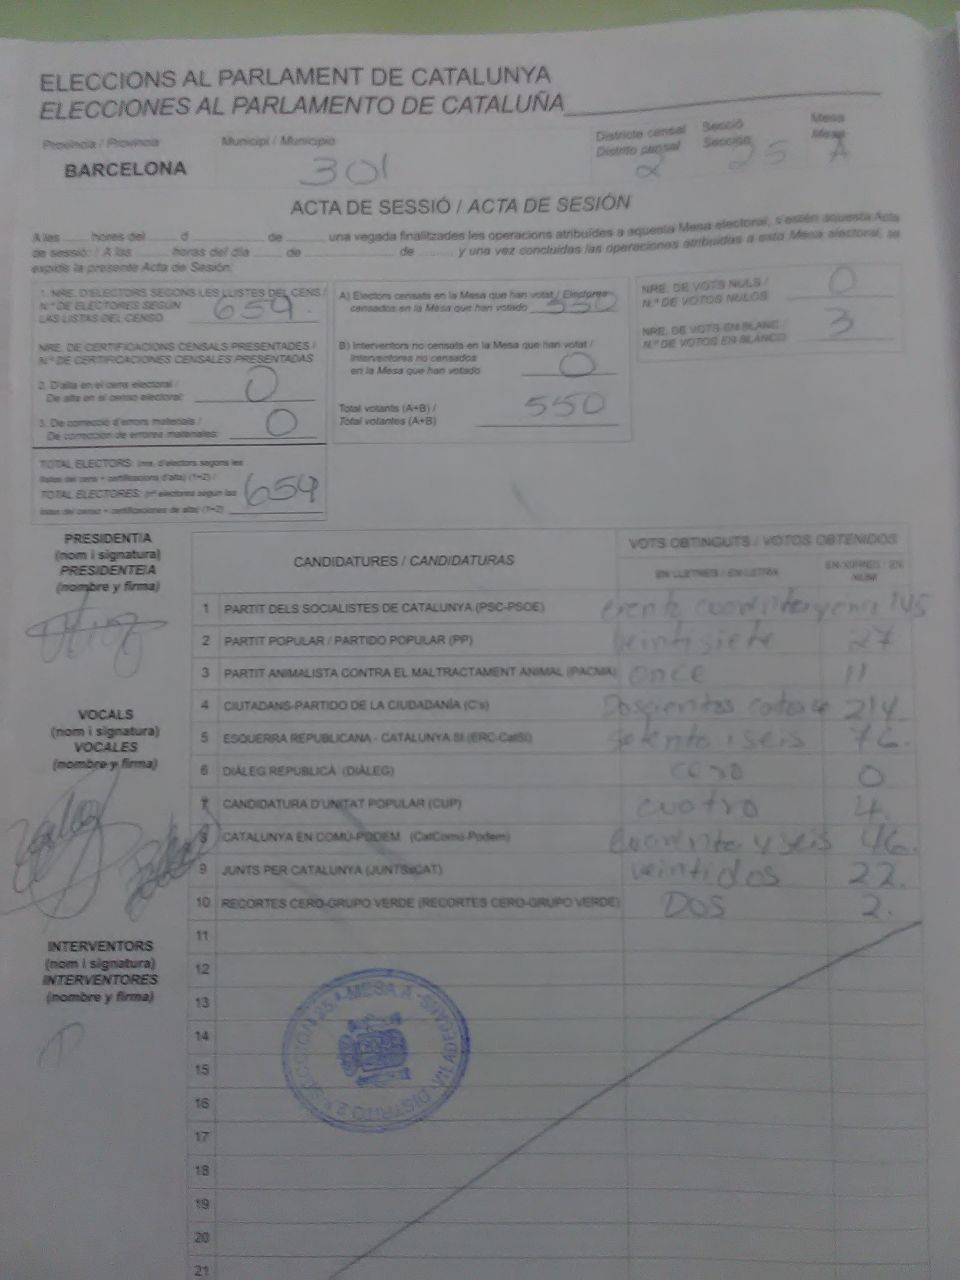 ELECCIONS AL PARLAMENT DE CATALUNYA
ELECCIONES AL PARLAMENTO DE CATALUÑA
Província / Provincia Municipi / Municipio Districte censal Secció Mesa
Distrito censal Sección Mesa
BARCELONA 301 2 25 A
ACTA DE SESSIÓ / ACTA DE SESIÓN
A les hores del d de una vegada finalitzades les operacions atribuïdes a aquesta Mesa electoral, s'estén aquesta Acta
de sessió: / A las horas del día de de y una vez concluidas las operaciones atribuidas a esta Mesa electoral, se
expide la presente Acta de Sesión:
1. NRE. D'ELECTORS SEGONS LES LLISTES DEL CENS /
N.º DE ELECTORES SEGÚN
LAS LISTAS DEL CENSO 659.
NRE. DE CERTIFICACIONS CENSALS PRESENTADES /
N.º DE CERTIFICACIONES CENSALES PRESENTADAS
2. D'alta en el cens electoral /
De alta en el censo electoral: 0
3. De correcció d'errors materials /
De corrección de errores materiales: 0
TOTAL ELECTORS: (nre. d'electors segons les
llistes del cens + certificacions d'alta) (1+2) /
TOTAL ELECTORES: (nº electores según las
listas del censo + certificaciones de alta) (1+2) 659
A) Electors censats en la Mesa que han votat / Electores
censados en la Mesa que han votado 550
B) Interventors no censats en la Mesa que han votat /
Interventores no censados
en la Mesa que han votado 0
Total votants (A+B) /
Total votantes (A+B) 550
NRE. DE VOTS NULS /
N.º DE VOTOS NULOS 0
NRE. DE VOTS EN BLANC /
N.º DE VOTOS EN BLANCO 3
PRESIDENT/A
(nom i signatura)
PRESIDENTE/A
(nombre y firma)
VOCALS
(nom i signatura)
VOCALES
(nombre y firma)
INTERVENTORS
(nom i signatura)
INTERVENTORES
(nombre y firma)
CANDIDATURES / CANDIDATURAS VOTS OBTINGUTS / VOTOS OBTENIDOS
EN LLETRES / EN LETRA EN XIFRES / EN
NÚM
1 PARTIT DELS SOCIALISTES DE CATALUNYA (PSC-PSOE) 145
2 PARTIT POPULAR / PARTIDO POPULAR (PP) veintisiete 27
3 PARTIT ANIMALISTA CONTRA EL MALTRACTAMENT ANIMAL (PACMA) once 11
4 CIUTADANS-PARTIDO DE LA CIUDADANÍA (C's) Doscientos catorce 214.
5 ESQUERRA REPUBLICANA - CATALUNYA SÍ (ERC-CatSí) setenta i seis 76.
6 DIÀLEG REPUBLICÀ (DIÀLEG) cero 0
7 CANDIDATURA D'UNITAT POPULAR (CUP) cuatro 4.
8 CATALUNYA EN COMÚ-PODEM (CatComú-Podem) cuarenta y seis 46.
9 JUNTS PER CATALUNYA (JUNTSxCAT) veintidos 22.
10 RECORTES CERO-GRUPO VERDE (RECORTES CERO-GRUPO VERDE) DOS 2.
11
12
13
14
15
16
17
18
19
20
21
DISTRITO 2 SECCION 25 MESA A VILADECANS